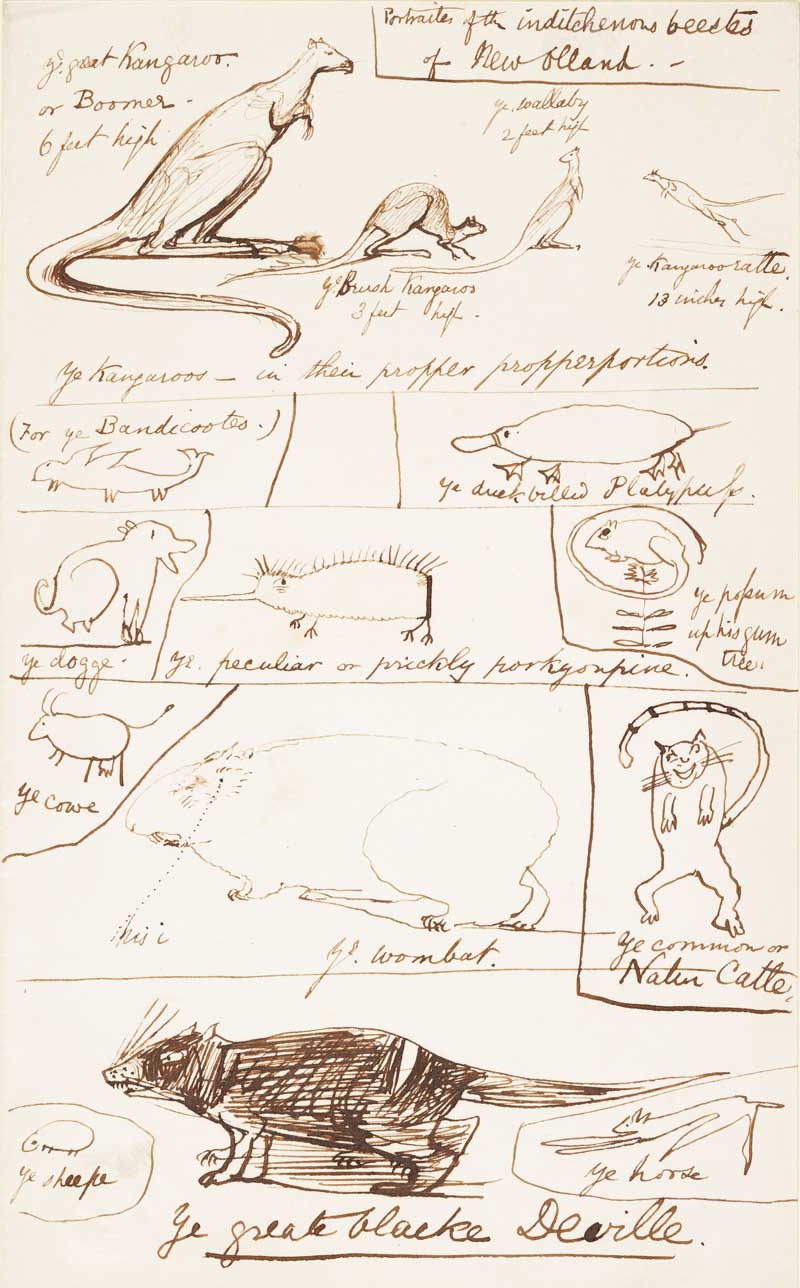 Portraites of th inditchenous beestes
of New Olland. -
ye. great Kangaroo.
or Boomer -
6 feet high
ye. wallaby
2 feet high
ye Kangaroo ratte.
13 inches high.
ye. Brush Kangaroo
3 feet high.
Ye Kangaroos — in their propper propperportions.
(For ye Bandicootes.)
Ye duck billed Platypuss.
ye possum
up his gum
tree.
ye dogge.
Ye. peculiar or prickly porkyonpine.
Ye cowe
his i
Ye. wombat.
Ye common or
Natur Catte.
ye sheepe
ye horse
Ye greate blacke Deville.